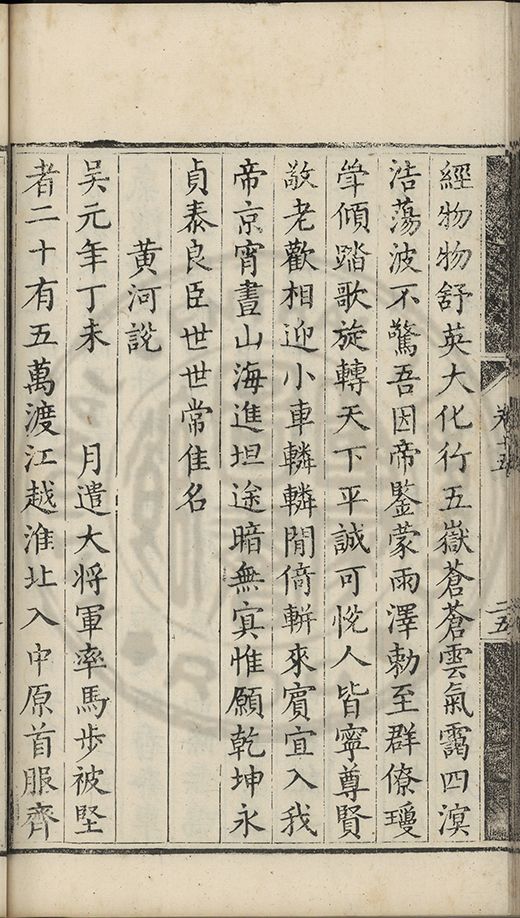 卷十五
二五
經物物舒英大化行五嶽蒼蒼雲氣靄四溟
浩蕩波不驚吾因帝鑒蒙雨澤勅至群僚瓊
傾踏歌旋轉天下平誠可悅人皆寧尊賢
敬老歡相迎小車轔轔閒倚輧來賓宜入我
帝京宵晝山海進坦途暗無㝠惟願乾坤永
貞泰良臣世世常佳名
黃河說
吳元年丁未　月遣大將軍率馬步被堅
者二十有五萬渡江越淮北入中原首服齊